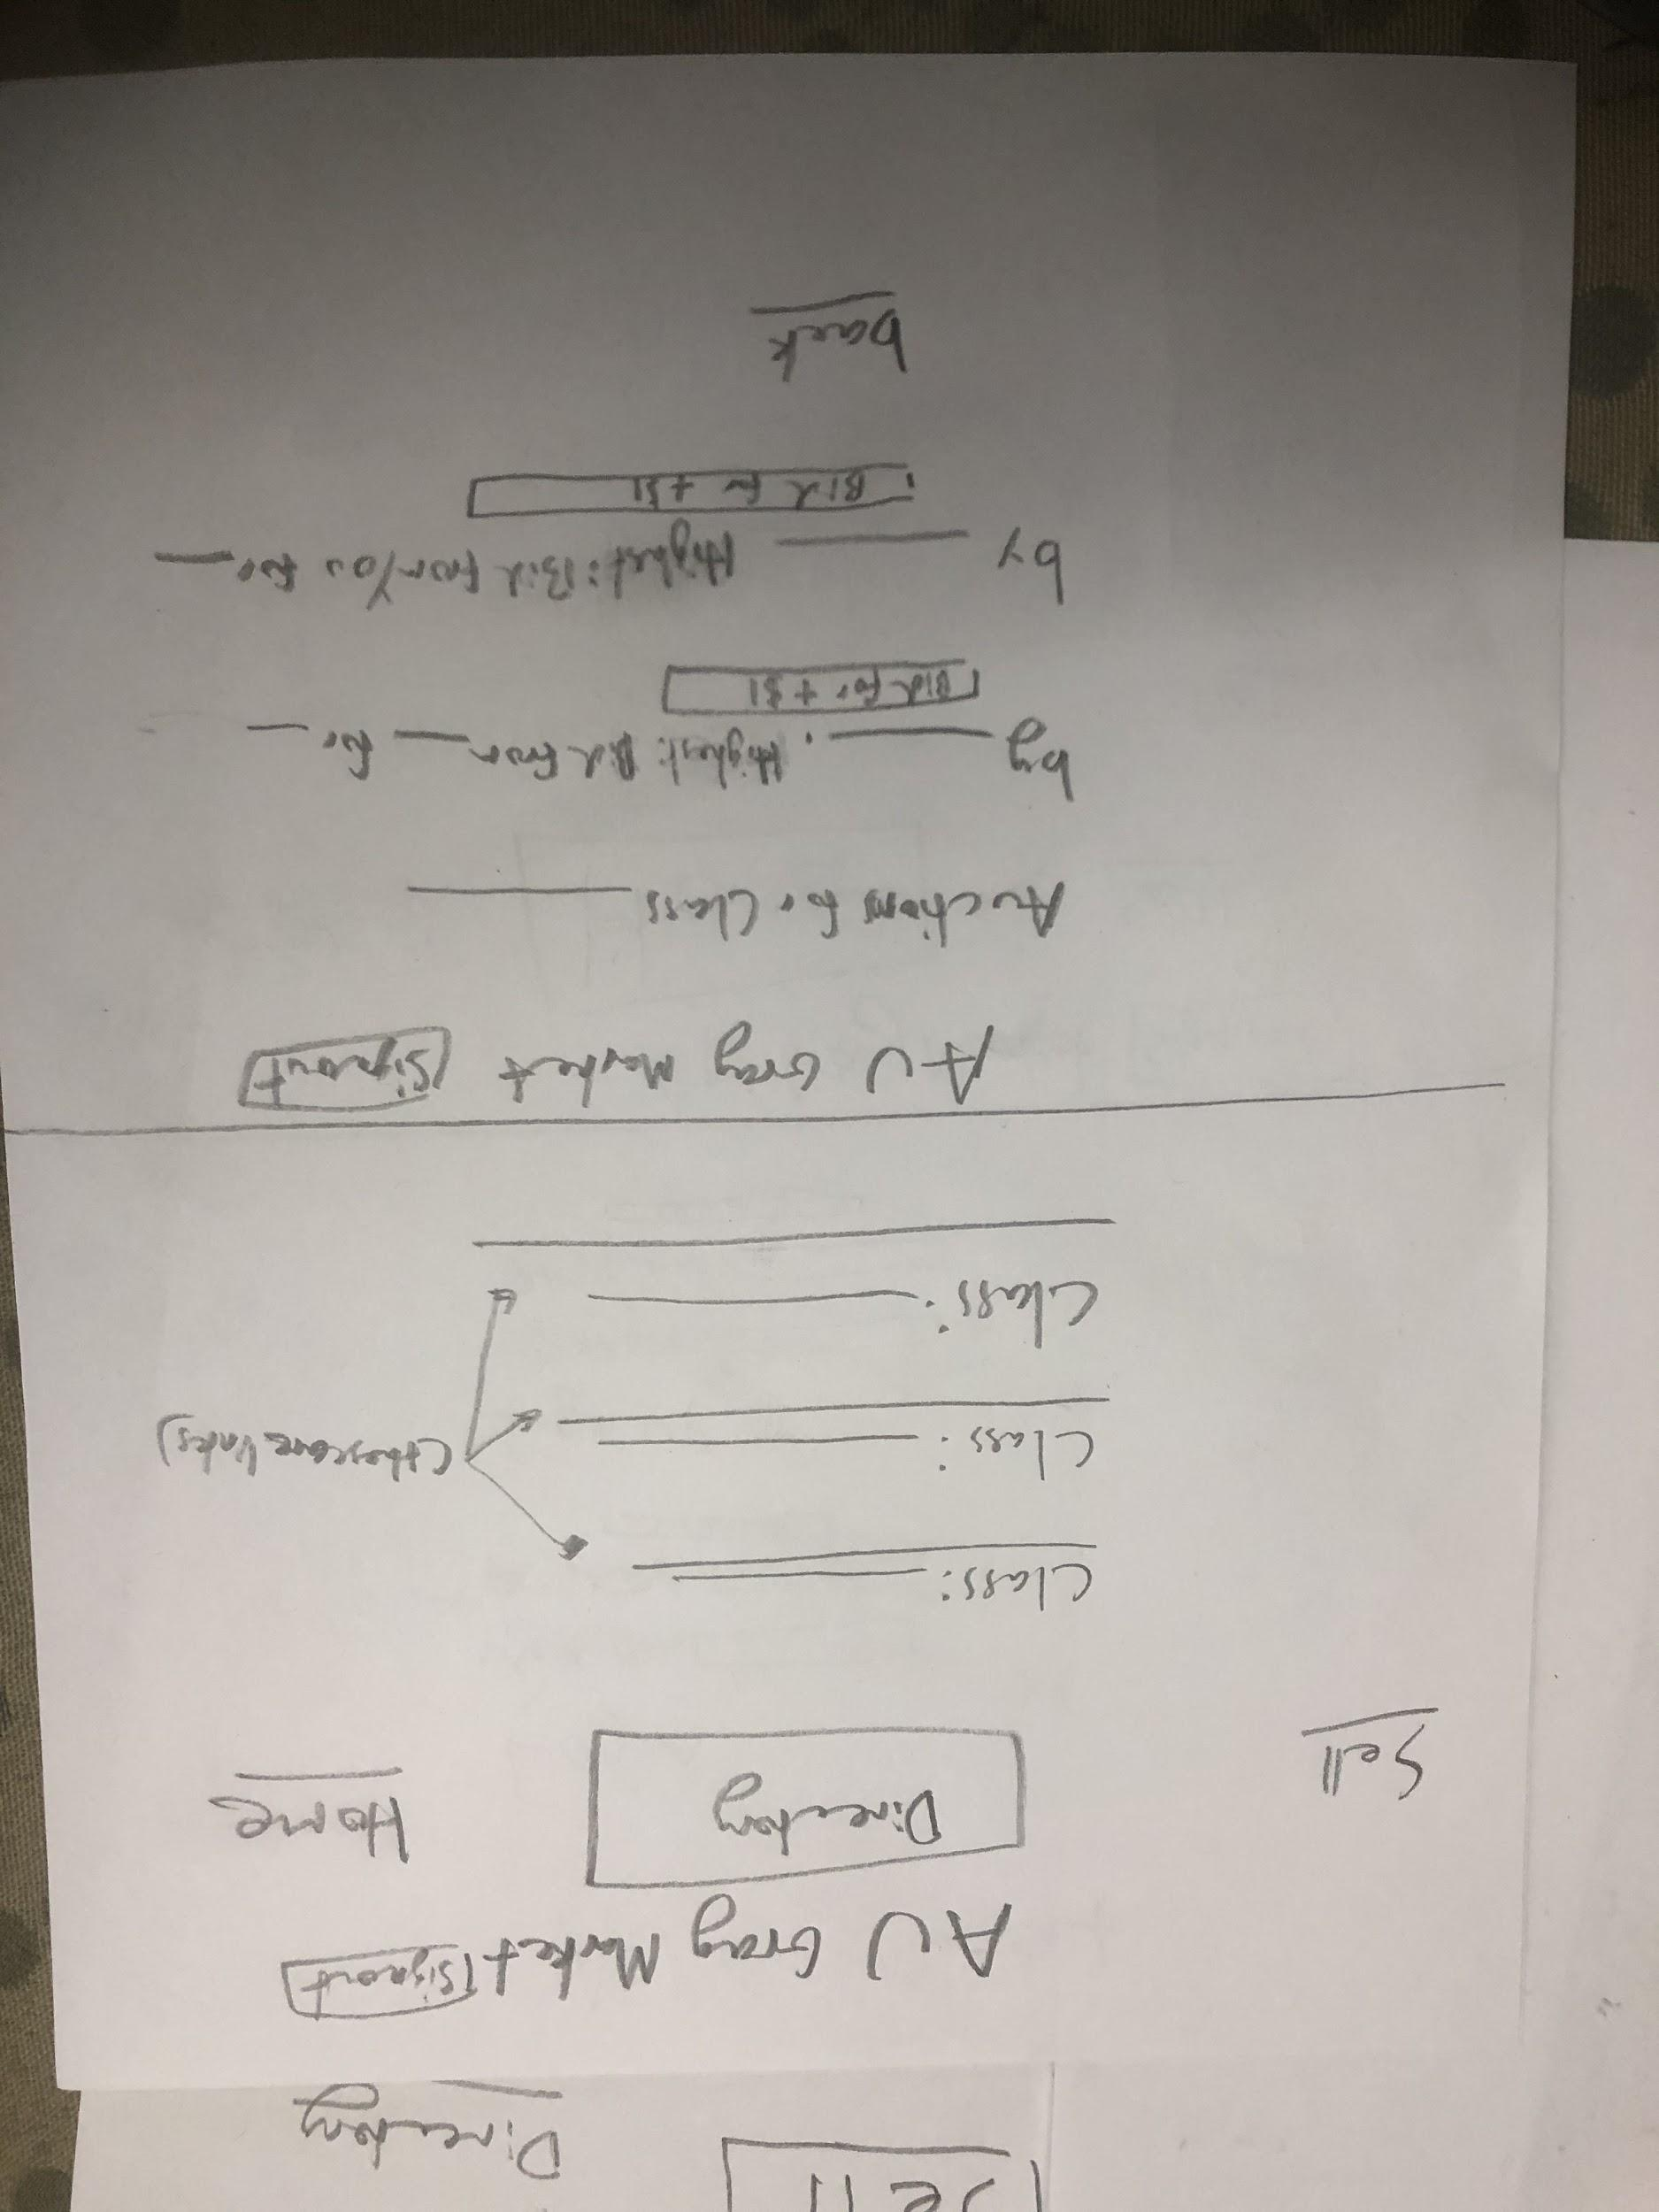 Sell
Directory
AU Gray Market Signout
Sell Directory Home
Class:
Class: (these are links)
Class:
AU Gray Market Signout
Auctions for Class
by Highest: Bid from for
Bid for +$1
by Highest: Bid from You for
Bid for +$1
back